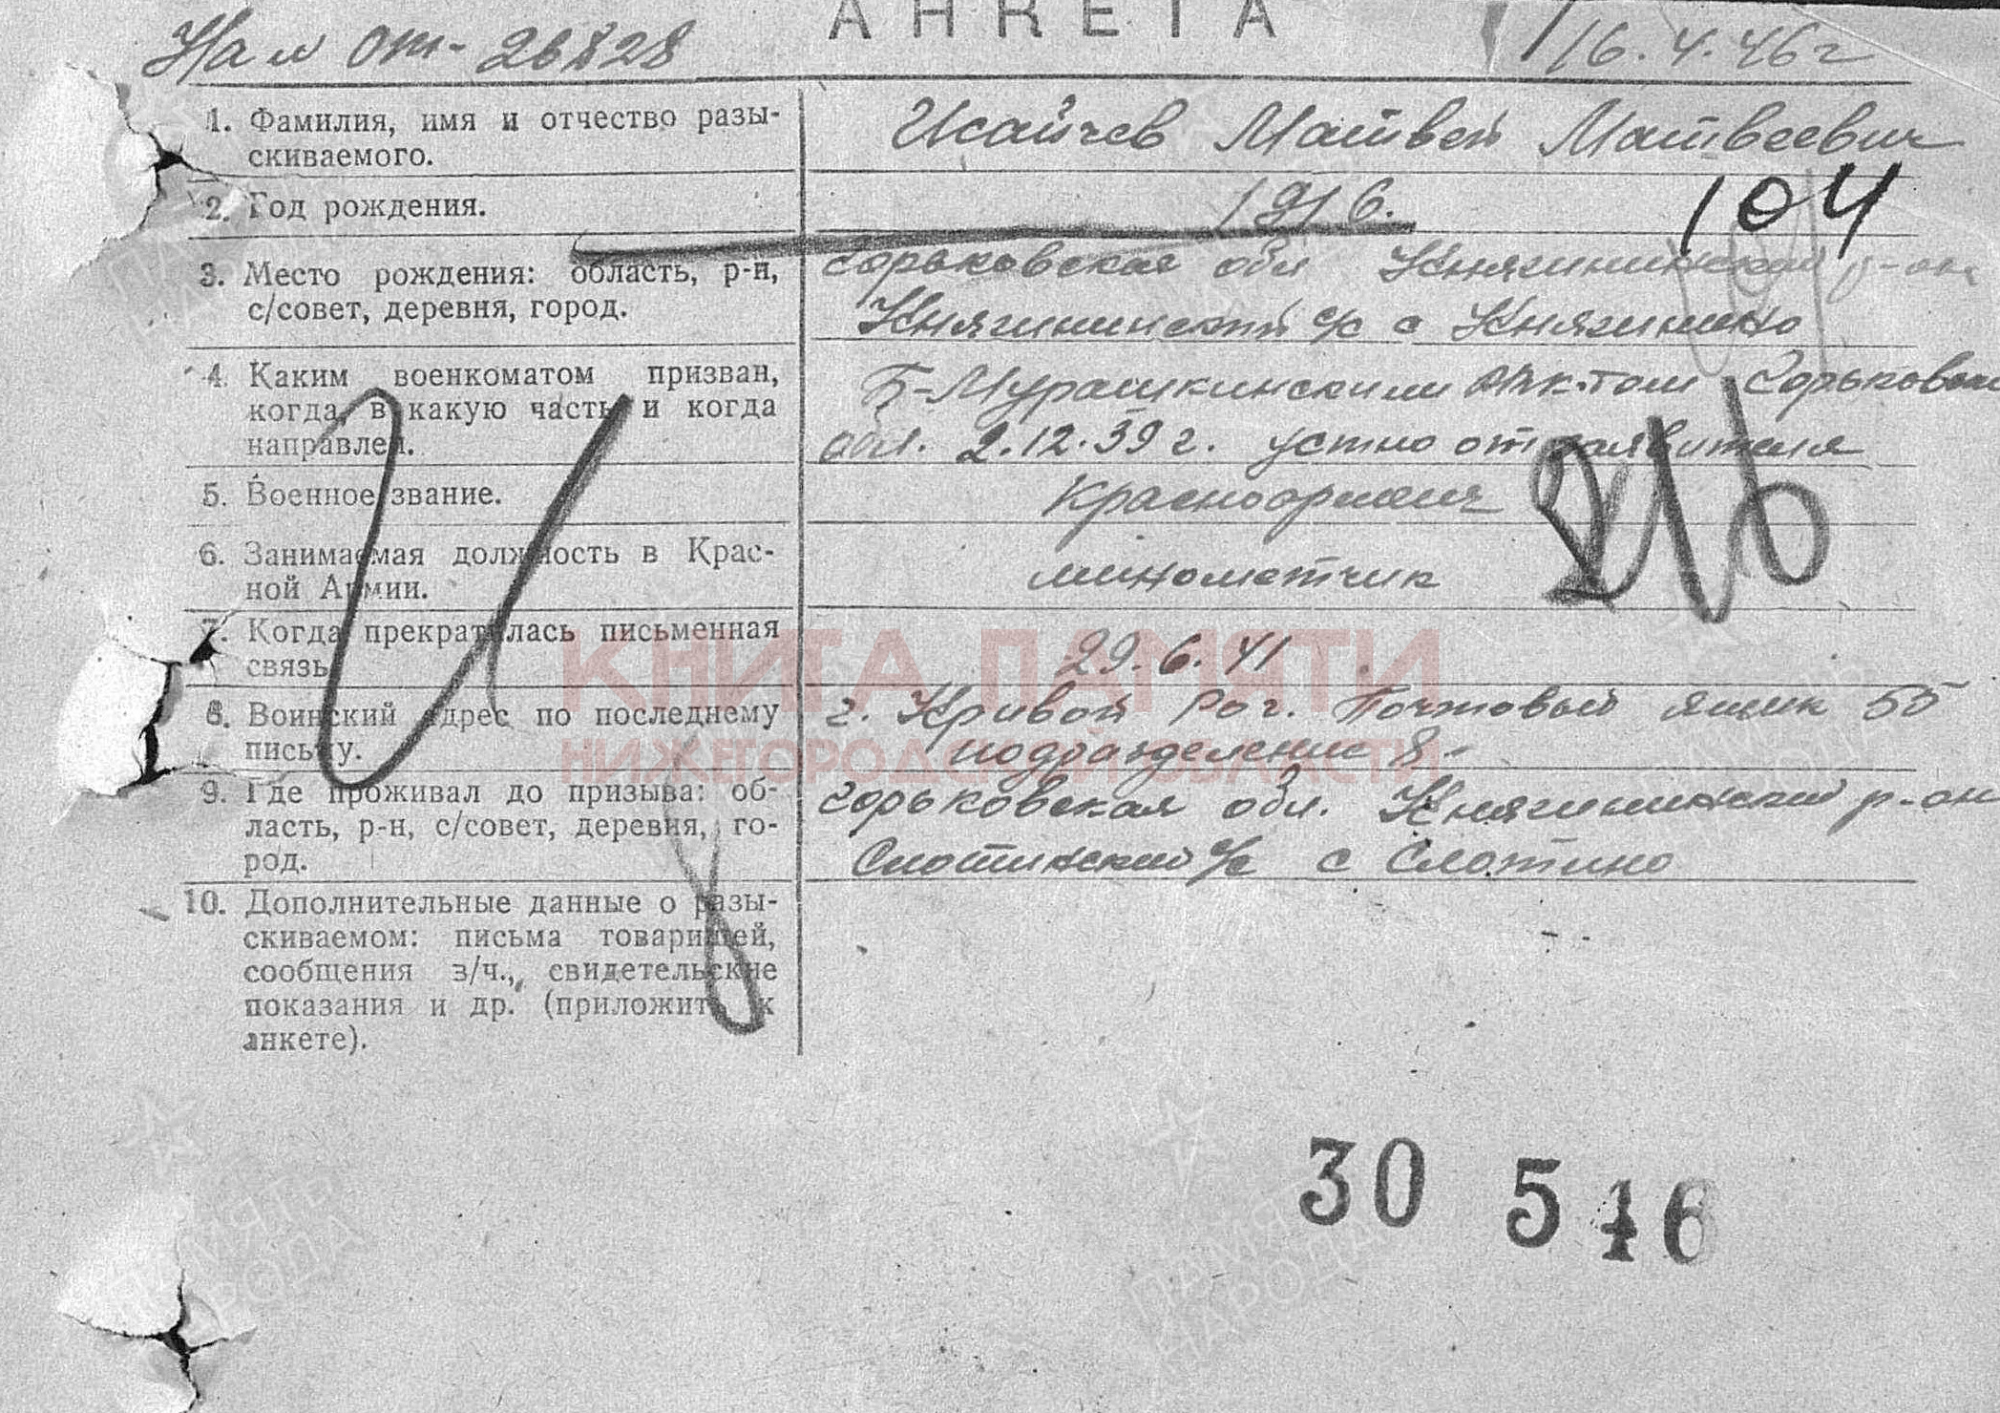 АНКЕТА
16.4.46 г
1. Фамилия, имя и отчество разы-
скиваемого.
Исайчев Матвей Матвеевич
2. Год рождения.
1916.
104
3. Место рождения: область, р-н,
с/совет, деревня, город.
Горьковская обл Княгининский р-он
Княгининский с/с с Княгинино
4. Каким военкоматом призван,
когда, в какую часть и когда
направлен.
Б-Мурашкинским Горьковской
обл. 2.12.39 г. устно от заявителя
5. Военное звание.
Красноармеец
6. Занимаемая должность в Крас-
ной Армии.
минометчик
7. Когда прекратилась письменная
связь
29.6.41
8. Воинский адрес по последнему
письму.
г. Кривой Рог. Почтовый ящик 55
подразделение 8
9. Где проживал до призыва: об-
ласть, р-н, с/совет, деревня, го-
род.
Горьковская обл. Княгининский р-он
с/с с Слотино
10. Дополнительные данные о разы-
скиваемом: письма товарищей,
сообщения з/ч., свидетельские
показания и др. (приложить к
анкете).
КНИГА ПАМЯТИ
НИЖЕГОРОДСКОЙ ОБЛАСТИ
30 546
ПАМЯТЬ
НАРОДА
ПАМЯТЬ
НАРОДА